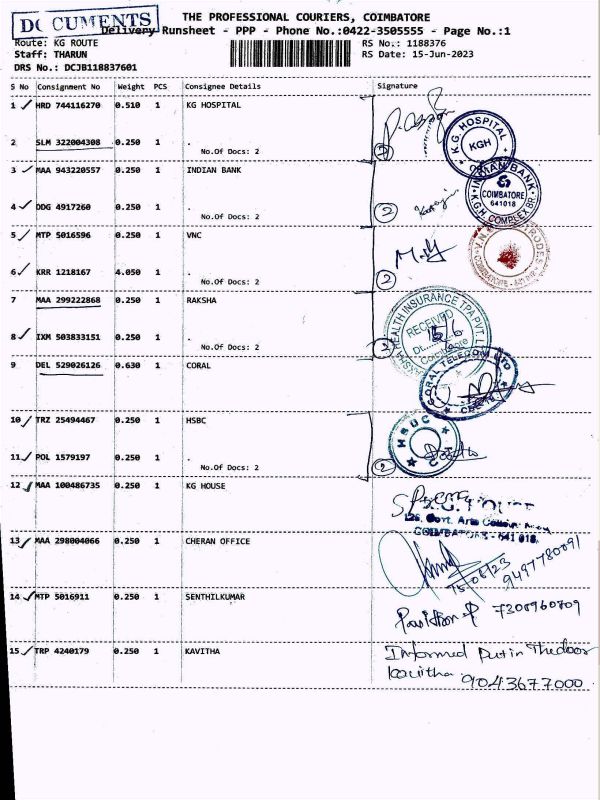 DOCUMENTS
THE PROFESSIONAL COURIERS, COIMBATORE
Delivery Runsheet - PPP - Phone No.:0422-3505555 - Page No.:1
Route: KG ROUTE RS No.: 1188376
Staff: THARUN RS Date: 15-Jun-2023
DRS No.: DCJB118837601
S No Consignment No Weight PCS Consignee Details Signature
1 HRD 744116270 0.510 1 KG HOSPITAL
K.G. HOSPITAL
KGH
2 SLM 322004308 0.250 1 .
No.Of Docs: 2 2
3 MAA 943220557 0.250 1 INDIAN BANK
INDIAN BANK
COIMBATORE
641018
K.G.H. COMPLEX BR.
4 DDG 4917260 0.250 1 .
No.Of Docs: 2 2
5 MTP 5016596 0.250 1 VNC
6 KRR 1218167 4.050 1 .
No.Of Docs: 2 2
7 MAA 299222868 0.250 1 RAKSHA
HEALTH INSURANCE TPA PVT
RECEIVED
Coimbatore
8 IXM 503833151 0.250 1 .
No.Of Docs: 2 2
9 DEL 529026126 0.630 1 CORAL
CORAL TELECOM LTD
10 TRZ 25494467 0.250 1 HSBC
HSBC
11 POL 1579197 0.250 1 .
No.Of Docs: 2 2
12 MAA 100486735 0.250 1 KG HOUSE
COIMBATORE - 641 018.
13 MAA 298004066 0.250 1 CHERAN OFFICE
15/06/23
9497780091
14 MTP 5016911 0.250 1 SENTHILKUMAR
7308960809
15 TRP 4240179 0.250 1 KAVITHA
Informed Put in The door
kavitha 9043677000